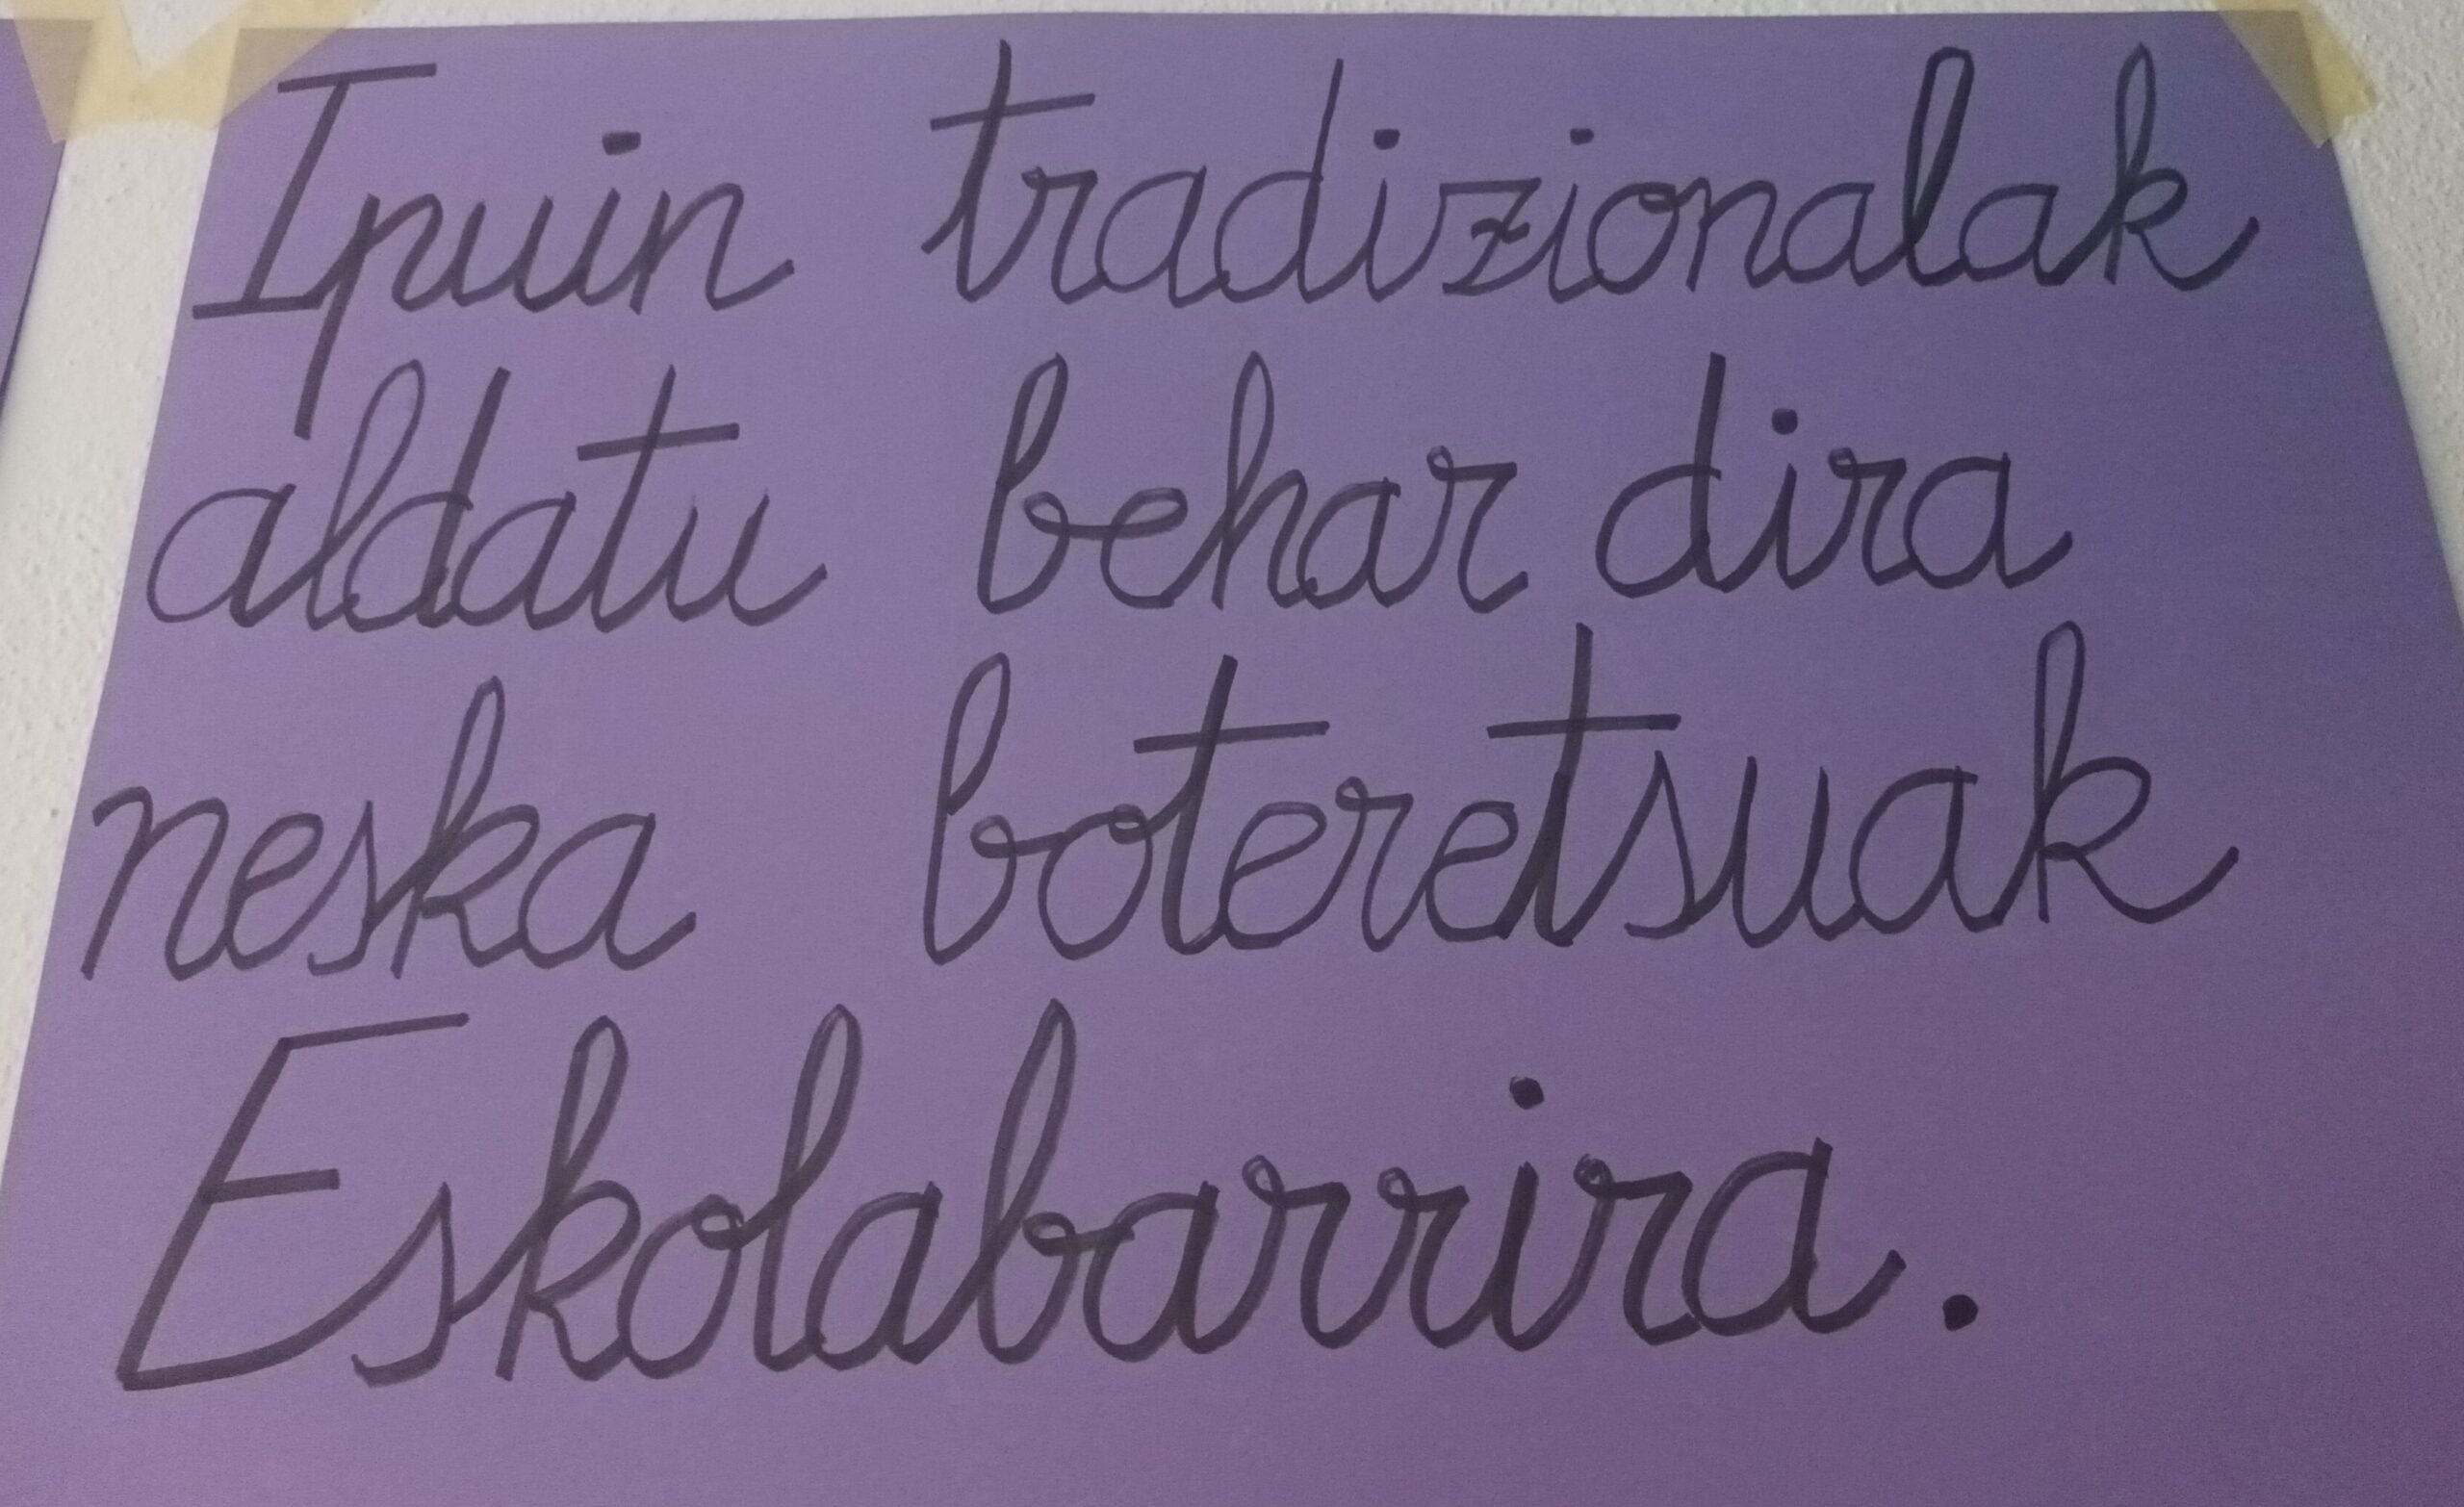 Ipuin tradizionalak
aldatu behar dira
neska boteretsuak
Eskolabarrira.